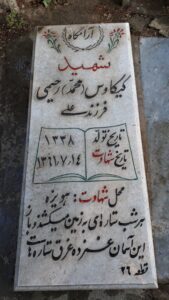 آرامگاه
شهید
کیکاوس (محمد) رحیمی
فرزند علی
تاریخ تولد ۱۳۳۸
تاریخ شهادت ۱۳۶۱/۷/۱۴
محل شهادت: هویزه
هر شب ستاره‌ای به زمین میکشند و باز
این آسمان غمزده غرق ستاره‌هاست
قطعه ۲۶